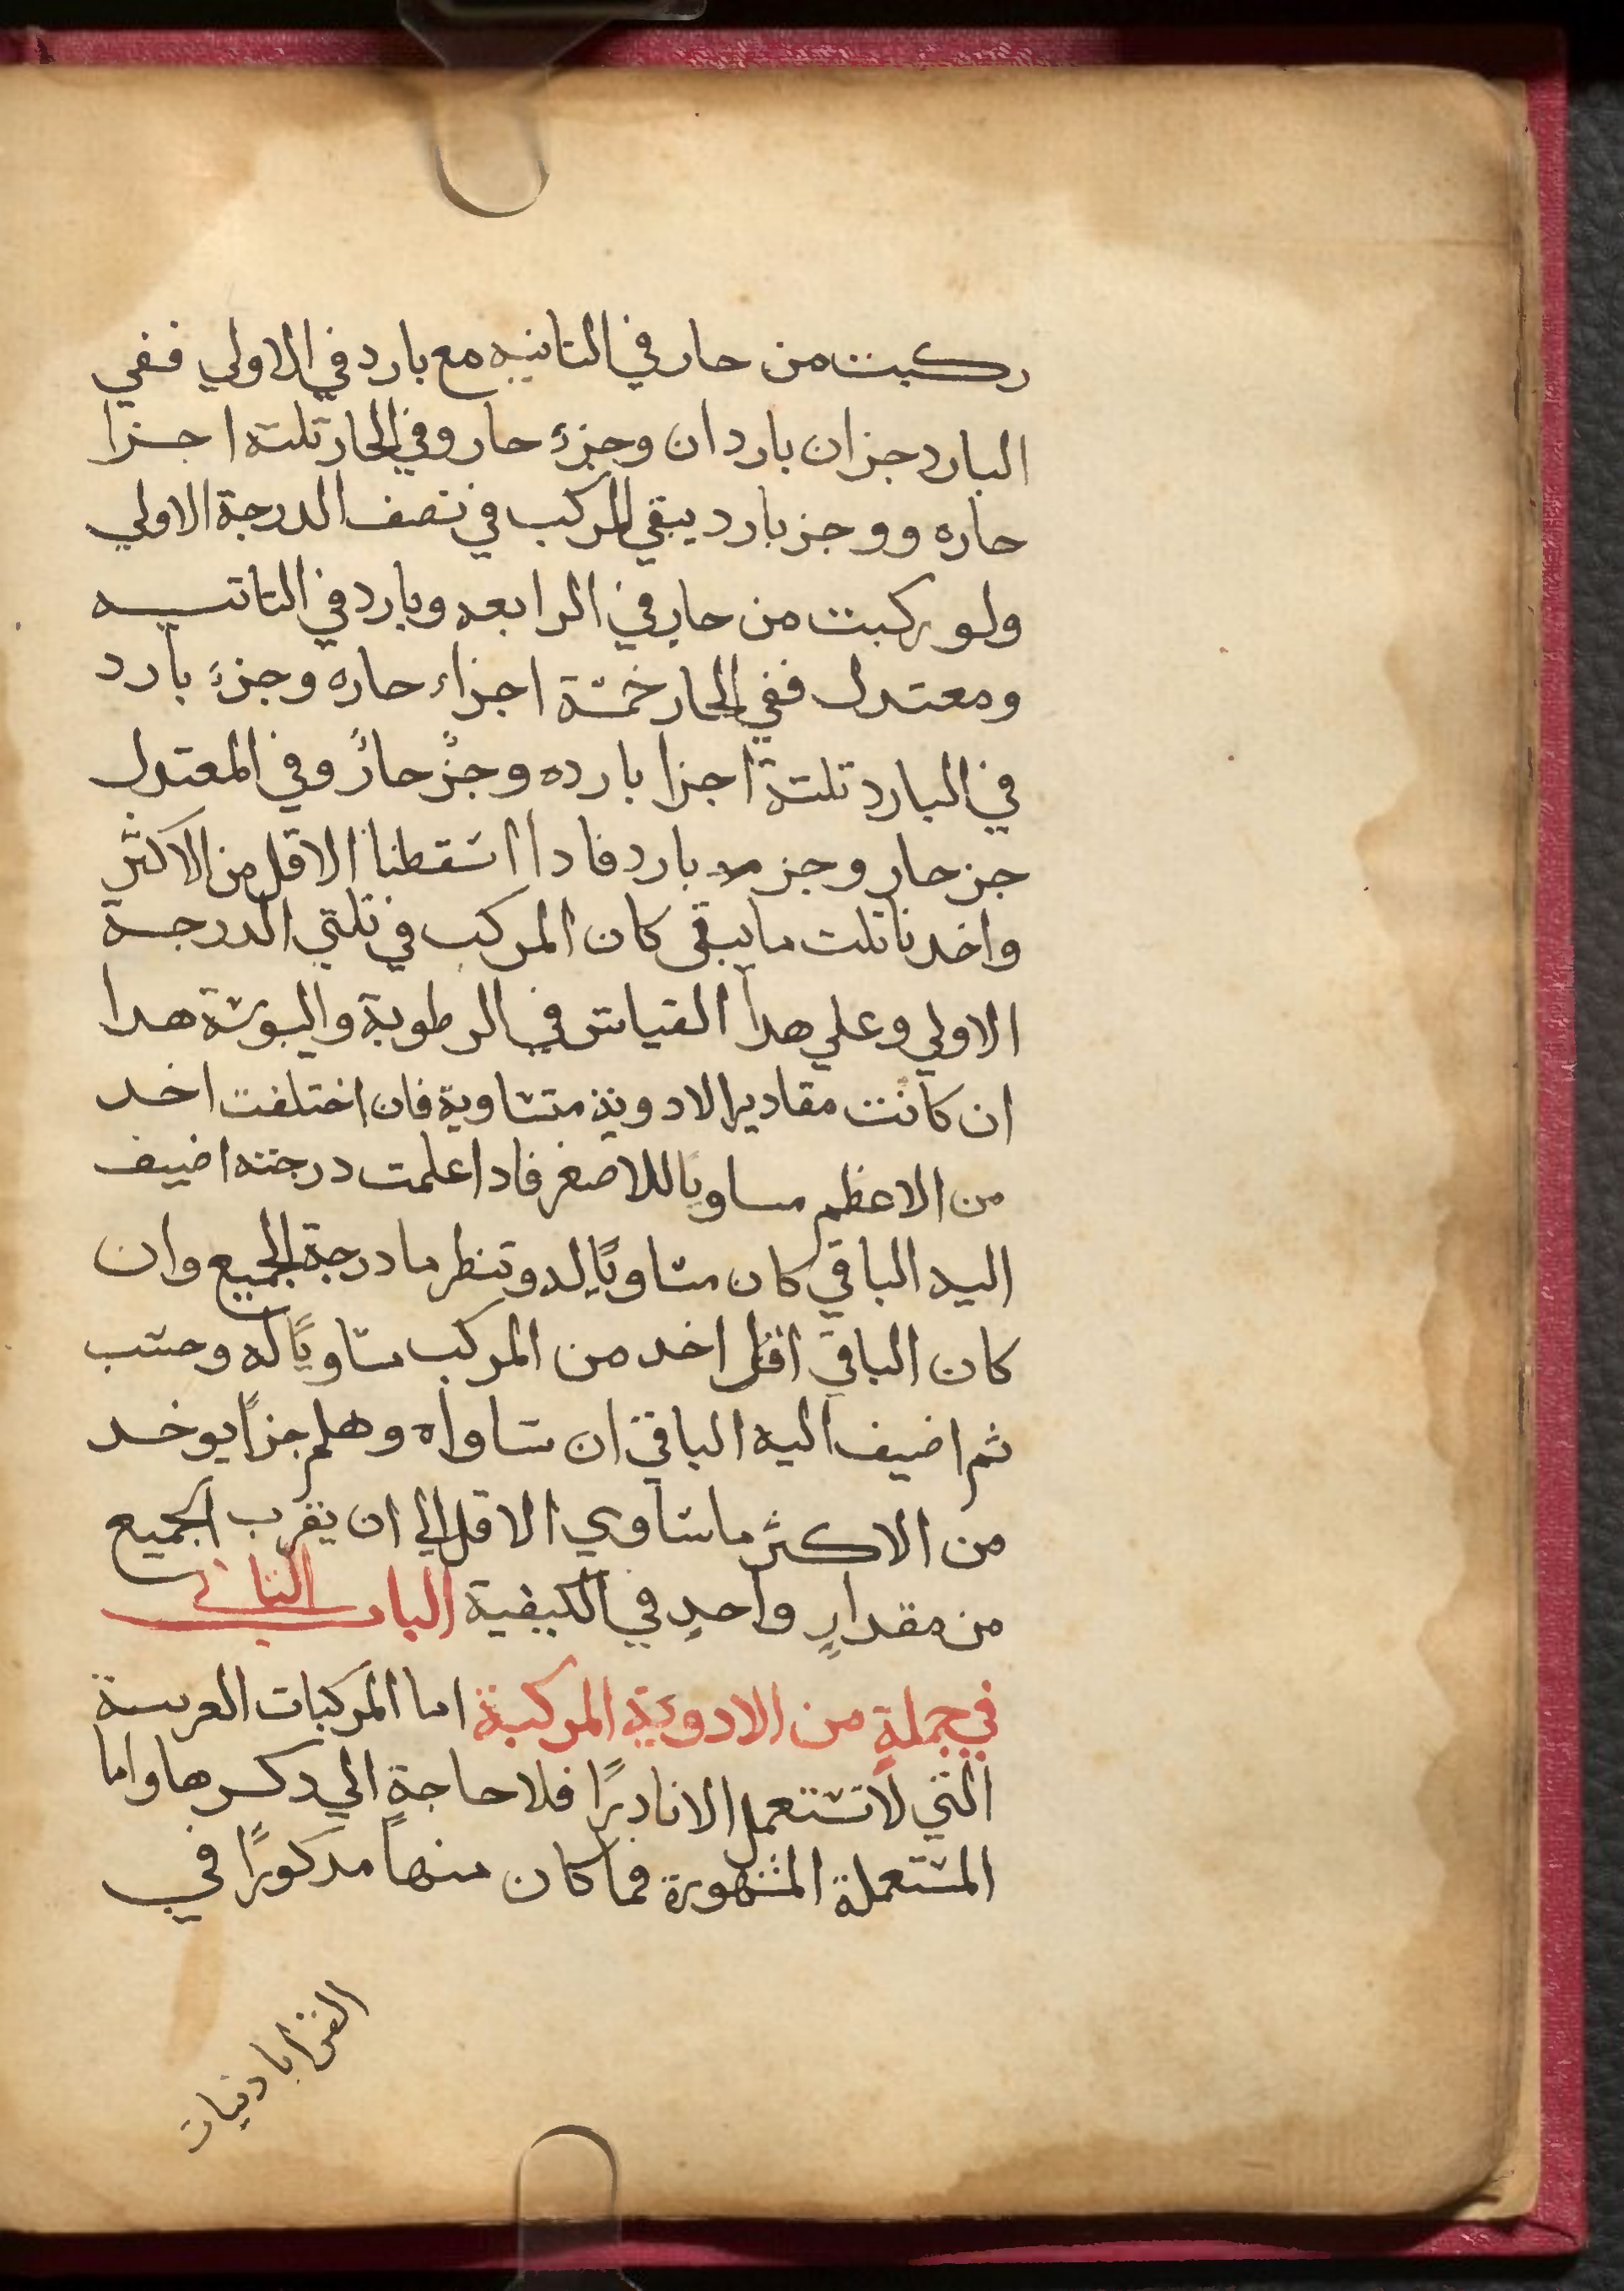 ركبت من حار في التانيه مع بارد في الاولي ففي
البارد جزان باردان وجزء حار وفي الحار تلتة اجزا
حاره ووجز بارد يبقي المركب في نصف الدرجة الاولي
ولو ركبت من حار في الرابعه وبارد في التانيه
ومعتدل ففي الحار خمسة اجزاء حاره وجزء بارد
في البارد تلتة اجزا بارده وجز حار وفي المعتدل
جز حار وجز بارد فادا اسقطنا الاقل من الاكثر
واخدنا تلت ما يبقى كان المركب في تلتي الدرجة
الاولي وعلي هدا القياس في الرطوبة واليبوسة هدا
ان كانت مقادير الادوية متساوية فان اختلفت اخد
من الاعظم مساويا للاصغر فادا علمت درجته اضيف
اليه الباقي كان مساويًا له وتنظر ما درجة الجميع وان
كان الباقي اقل اخد من المركب مساويًا له وحسب
ثم اضيف اليه الباقي ان ساواه وهلم جرًا يوخد
من الاكثر ما ساوي الاقل الي ان يقرب الجميع
من مقدارٍ واحدٍ في الكيفية الباب التاني
في جملةٍ من الادوية المركبة اما المركبات الغريبة
التي لا تستعمل الا نادرًا فلا حاجةٍ الي دكرها واما
المستعملة المشهورة فما كان منها مدكورًا في
القرابادنيات